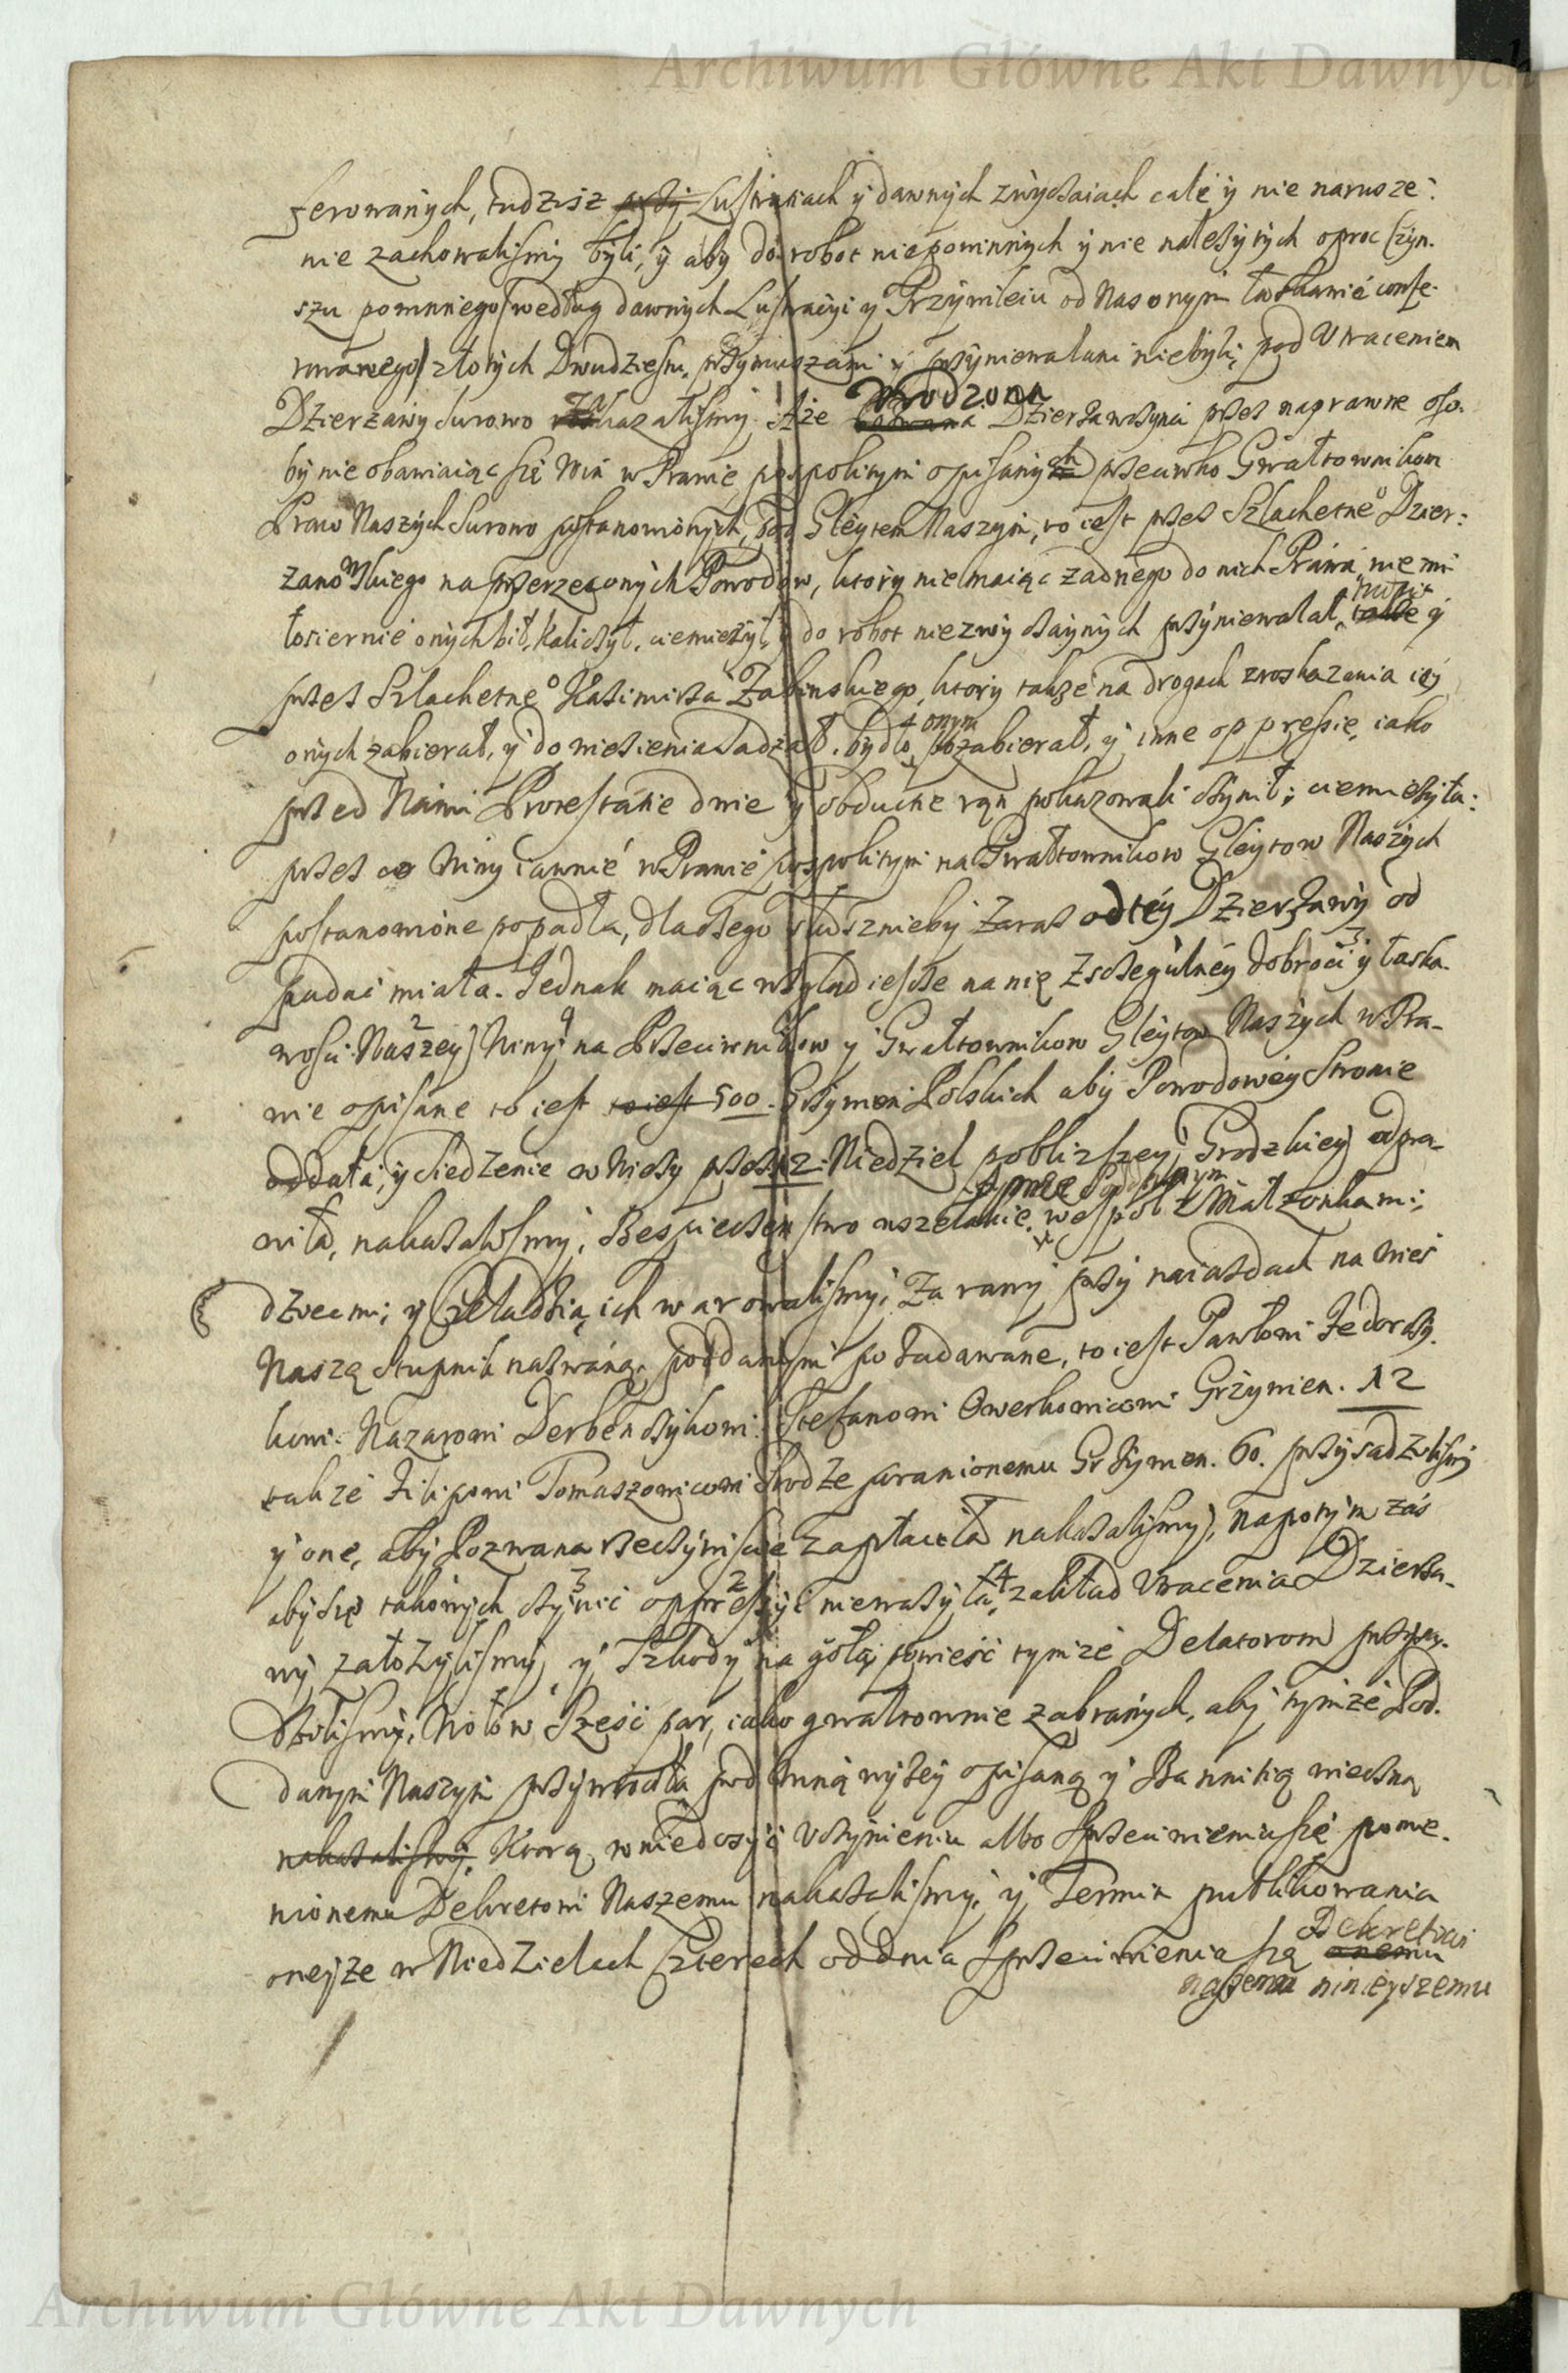 Archiwum Główne Akt Dawnych
ferowanych, tudzisz przÿ Lustraciach ÿ dawnych zwyczaiach cale ÿ nie narusze:
nie zachowalismÿ bÿli, ÿ abÿ do robot niepowinnÿch ÿ nie należÿtÿch oproc Czÿn.
szu powinnego /według dawnÿch Lustraciÿi ÿ Przÿwileiu od Nas onÿm łaskawie confe.
rowanego/ złotÿch Dwudziestu, przÿmuszani ÿ przÿniewalani niebÿli, pod Utraceniem
Dzierzawÿ surowo zakazalismÿ. Aże Urodzona Dzierżawczÿni przez naprawne oso.
bÿ nie obawiaiąc się Win w Prawie pospolitÿm opisanÿch przeciwko Gwałtownikom
Praw Naszÿch surowo postanowionÿch, pod Gleÿtem Naszÿm, to iest przez Szlachetneo Dzier:
zanowskiego na przerzeczonÿch Powodow, ktorÿ nie maiąc żadnego do nich Prawa, nie mi
łosiernie onÿch bił, kaliczÿł, ciemiężÿł, ÿ do robot niezwÿczaÿnÿch przÿniewalał, ÿ
przez Szlachetneo Kazimirza Żabinskiego, ktorÿ także na drogach z roskazania ieÿ
onÿch zabierał, ÿ do więzienia sadzał, bÿdło onÿm zabierał, ÿ inne oppressie, iako
przed Nami Protestacie dwie ÿ obdukcie ran pokazowali czÿnił, ciemiężÿła:
przez co Winÿ iawnie w Prawie pospolitÿm na Gwałtownikow Gleÿtow Naszÿch
postanowione popadła, dla czego słuszniebÿ zaraz od teÿ Dzierżawÿ od
padać miała. Jednak maiąc wzgląd ieszcze na nię z szczegulneÿ dobroci 3 ÿ łaska.
wości Naszeÿ 2 Winÿ na Przeciwnikow ÿ Gwałtownikow Gleÿtow Naszÿch w Pra-
wie opisane to iest to iest 500. Grzÿwien Polskich abÿ Powodoweÿ Stronie
oddała, ÿ siedzenie w Wieżÿ przez 12. Niedziel poblizszeÿ Grodzkieÿ odpra-
wiła, nakazalismÿ, Bespieczenstwo wszelakie wespoł z Małzonkami,
dziecmi, ÿ Czeladzią ich warowalismÿ, Za ranÿ przÿ naiazdach na Wieś
Naszą Stupnik nazwaną, poddanÿm pozadawane, to iest Pawłowi Fedorczÿ.
kowi. Nazarowi Derbenczÿkowi. Stefanowi Owerkowicowi Grzÿwien. 12
także Filipowi Tomaszowicowi srodze poranionemu Grzÿwien. 60. przÿsądzilismÿ
ÿ one, abÿ Pozwana rzeczÿwiscie zapłaciła nakazalismÿ, napotÿm zaś
abÿ się takowÿch czÿnić 3 oppressÿi 2 nieważÿła, 4 zakład Utracenia Dzierża-
wÿ założÿlismÿ, ÿ Szkodÿ na gołą powieść tÿmże Delatorom przÿsą.
dzilismÿ, Wołow Sześć par, iako gwałtownie zabranÿch, abÿ tÿmże Pod.
danÿm Naszÿm przÿwrociła pod Winą wÿżeÿ opisaną ÿ Bannitią wieczną
nakazalismÿ. Ktorą, w niedosÿć Uczÿnieniu albo sprzeciwieniu się pomie.
nionemu Dekretowi Naszemu nakazalismÿ, ÿ Termin publikowania
oneÿże w Niedzielach Czterech od dnia sprzeciwienia się onemu Dekretowi
naszemu ninieÿszemu
Archiwum Główne Akt Dawnych